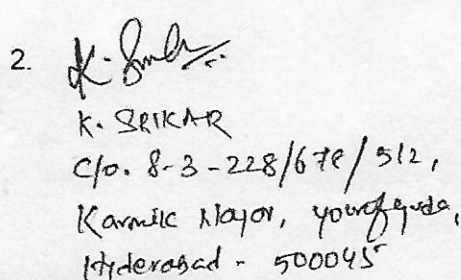 2. K. Srikar
K. SRIKAR
C/o. 8-3-228/678/512,
Karmik Nagar, Yousufguda,
Hyderabad - 500045